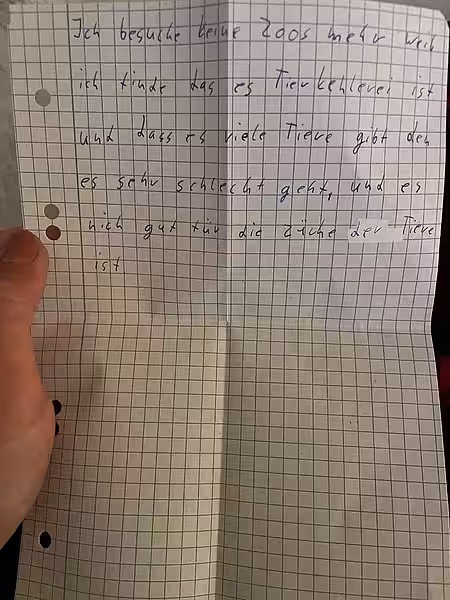 Ich besuche keine Zoos mehr weil
ich finde das es Tierkehlerei ist
und dass es viele Tiere gibt den
es sehr schlecht geht, und es
nich gut für die züche der Tiere
ist